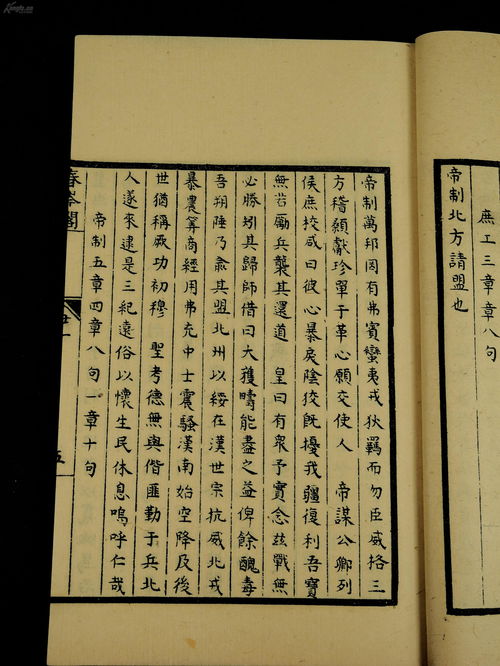 庶工三章章八句
帝制北方請盟也
帝制萬邦罔有弗賓蠻夷戎狄羈而勿臣威格三
方稽顙獻珍單于革心願交使人 帝謀公卿列
侯庶挍咸曰彼心暴戾陰狡旣擾我疆復利吾寶
無若勵兵襲其還道 皇曰有衆予實念茲戰無
必勝矧其歸師借曰大獲疇能盡之益俾餘醜毒
吾朔陲乃肅其盟北州以綏在漢世宗抗威北戎
暴農筭商經用弗充中士震騷漢南始空降及後
世猶稱厥功初穆 聖考德無與偕匪勤于兵北
人遂來逮是三紀遠俗以懷生民休息嗚呼仁哉
帝制五章四章八句一章十句
五